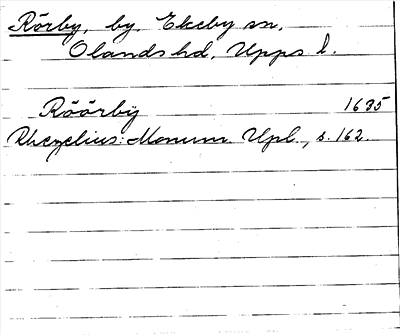 Rörby, by, Ekeby sn,
Olands hd, Upps l.
Röörbÿ 1635
Rhezelius: Monum. Upl., s. 162.